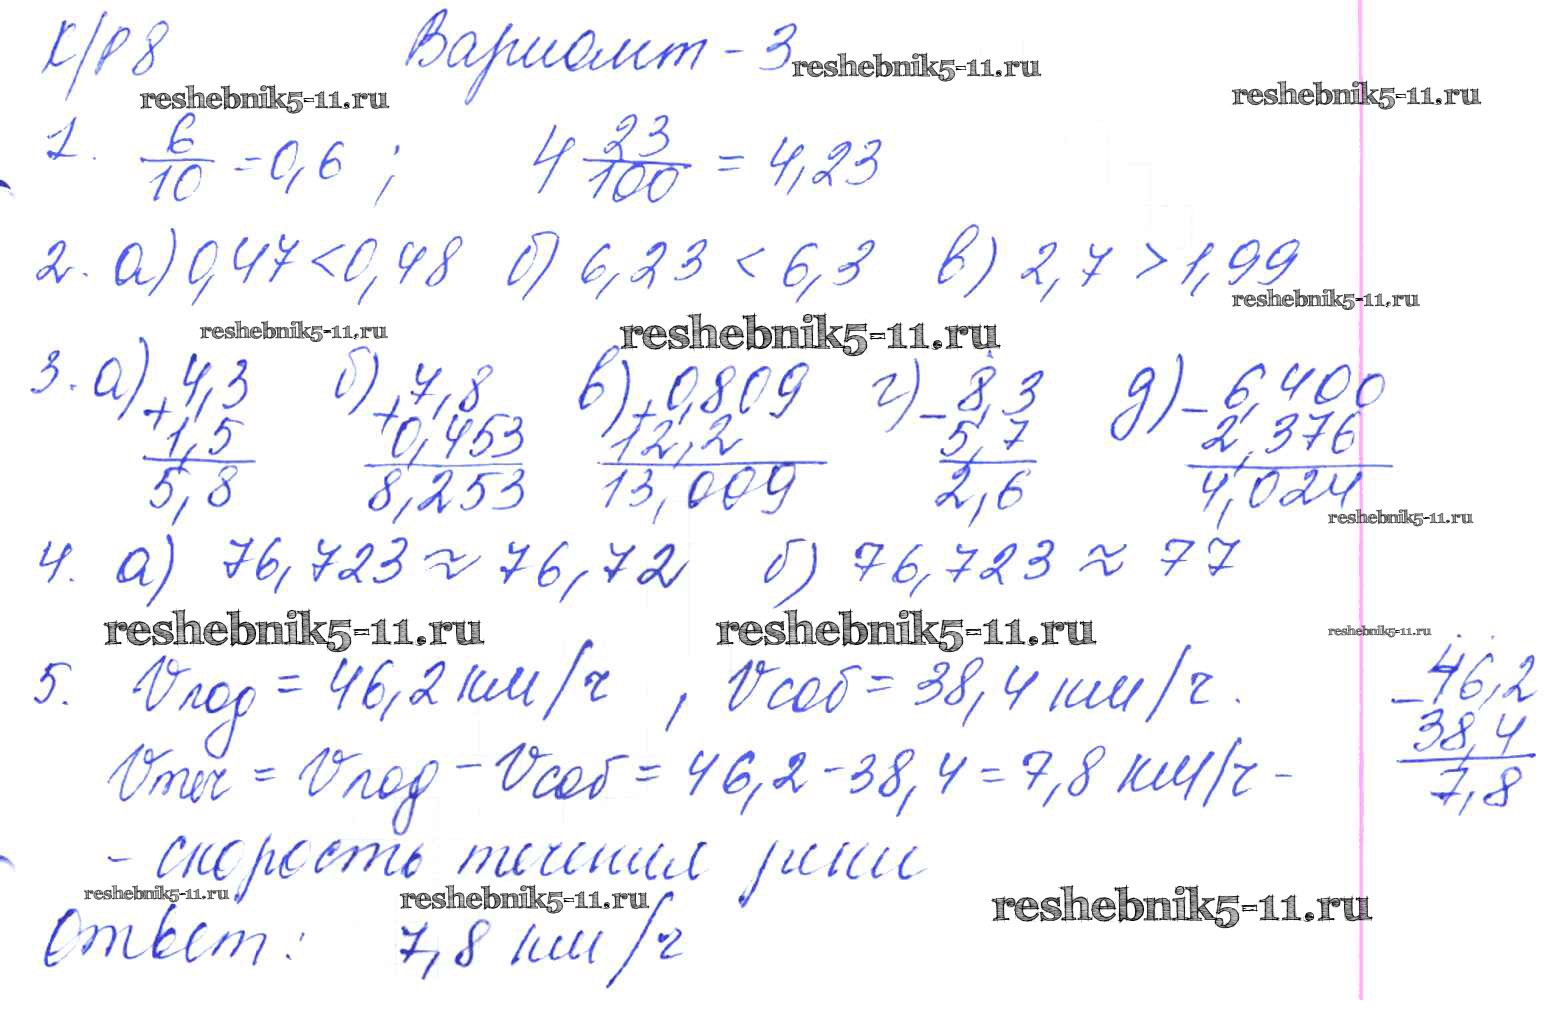 К/Р 8 Вариант - 3
reshebnik5-11.ru
reshebnik5-11.ru
reshebnik5-11.ru
1. 6/10 = 0,6 ; 4 23/100 = 4,23
2. а) 0,47 < 0,48 б) 6,23 < 6,3 в) 2,7 > 1,99
reshebnik5-11.ru
reshebnik5-11.ru
reshebnik5-11.ru
3. а) + 4,3 б) + 7,8 в) + 0,809 г) - 8,3 д) - 6,400
1,5 0,453 12,2 5,7 2,376
5,8 8,253 13,009 2,6 4,024
reshebnik5-11.ru
4. а) 76,723 ≈ 76,72 б) 76,723 ≈ 77
reshebnik5-11.ru
reshebnik5-11.ru
reshebnik5-11.ru
5. Vпод = 46,2 км/ч , Vсоб = 38,4 км/ч .
- 46,2
38,4
7,8
Vтеч = Vпод - Vсоб = 46,2 - 38,4 = 7,8 км/ч -
- скорость течения реки
reshebnik5-11.ru
reshebnik5-11.ru
reshebnik5-11.ru
Ответ: 7,8 км/ч